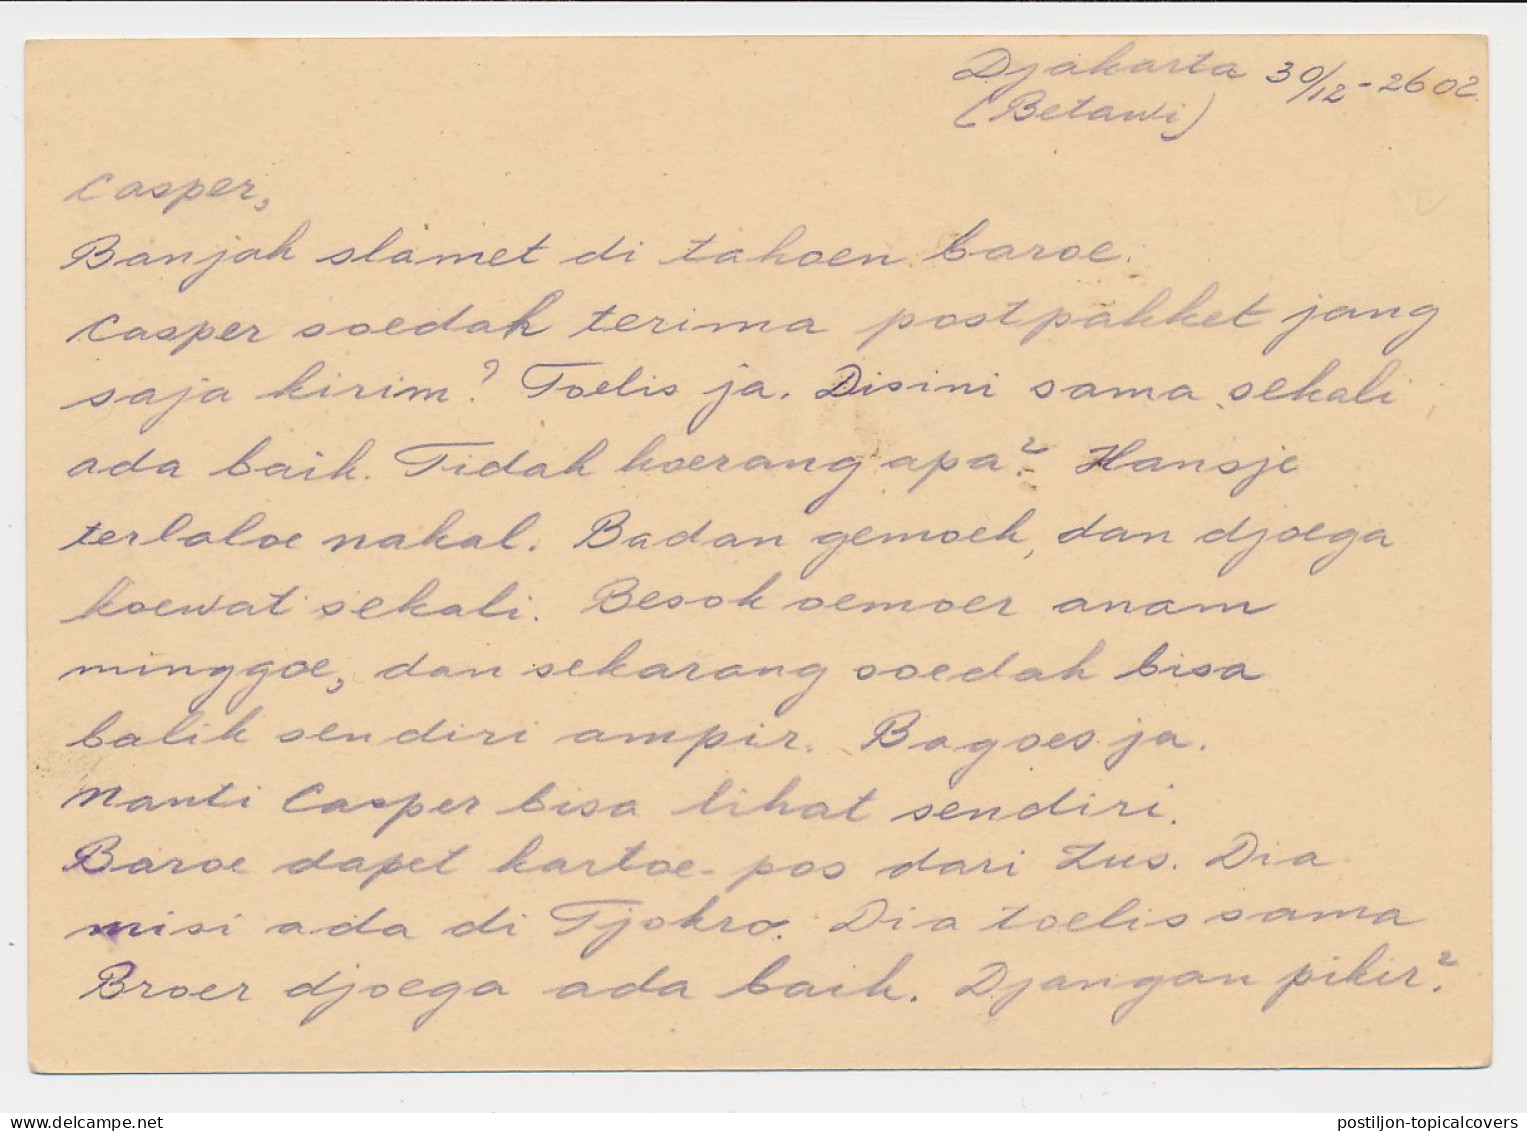 Djakarta 30/12-2602.
(Betawi)
Casper,
Banjak slamet di tahoen baroe.
Casper soedah terima postpakket jang
saja kirim? Toelis ja. Disini sama sekali
ada baik. Tidak koerang apa². Hansje
terlaloe nakal. Badan gemoek, dan djoega
koewat sekali. Besok oemoer anam
minggoe, dan sekarang soedah bisa
balik sendiri ampir. Bagoes ja.
Nanti Casper bisa lihat sendiri.
Baroe dapet kartoe-pos dari Zus. Dia
misi ada di Tjokro. Dia toelis sama
Broer djoega ada baik. Djangan pikir².
delcampe.net
postiljon-topicalcovers